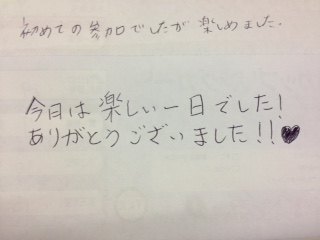 初めての参加でしたが楽しめました.
今日は楽しい一日でした!
ありがとうございました!!♥